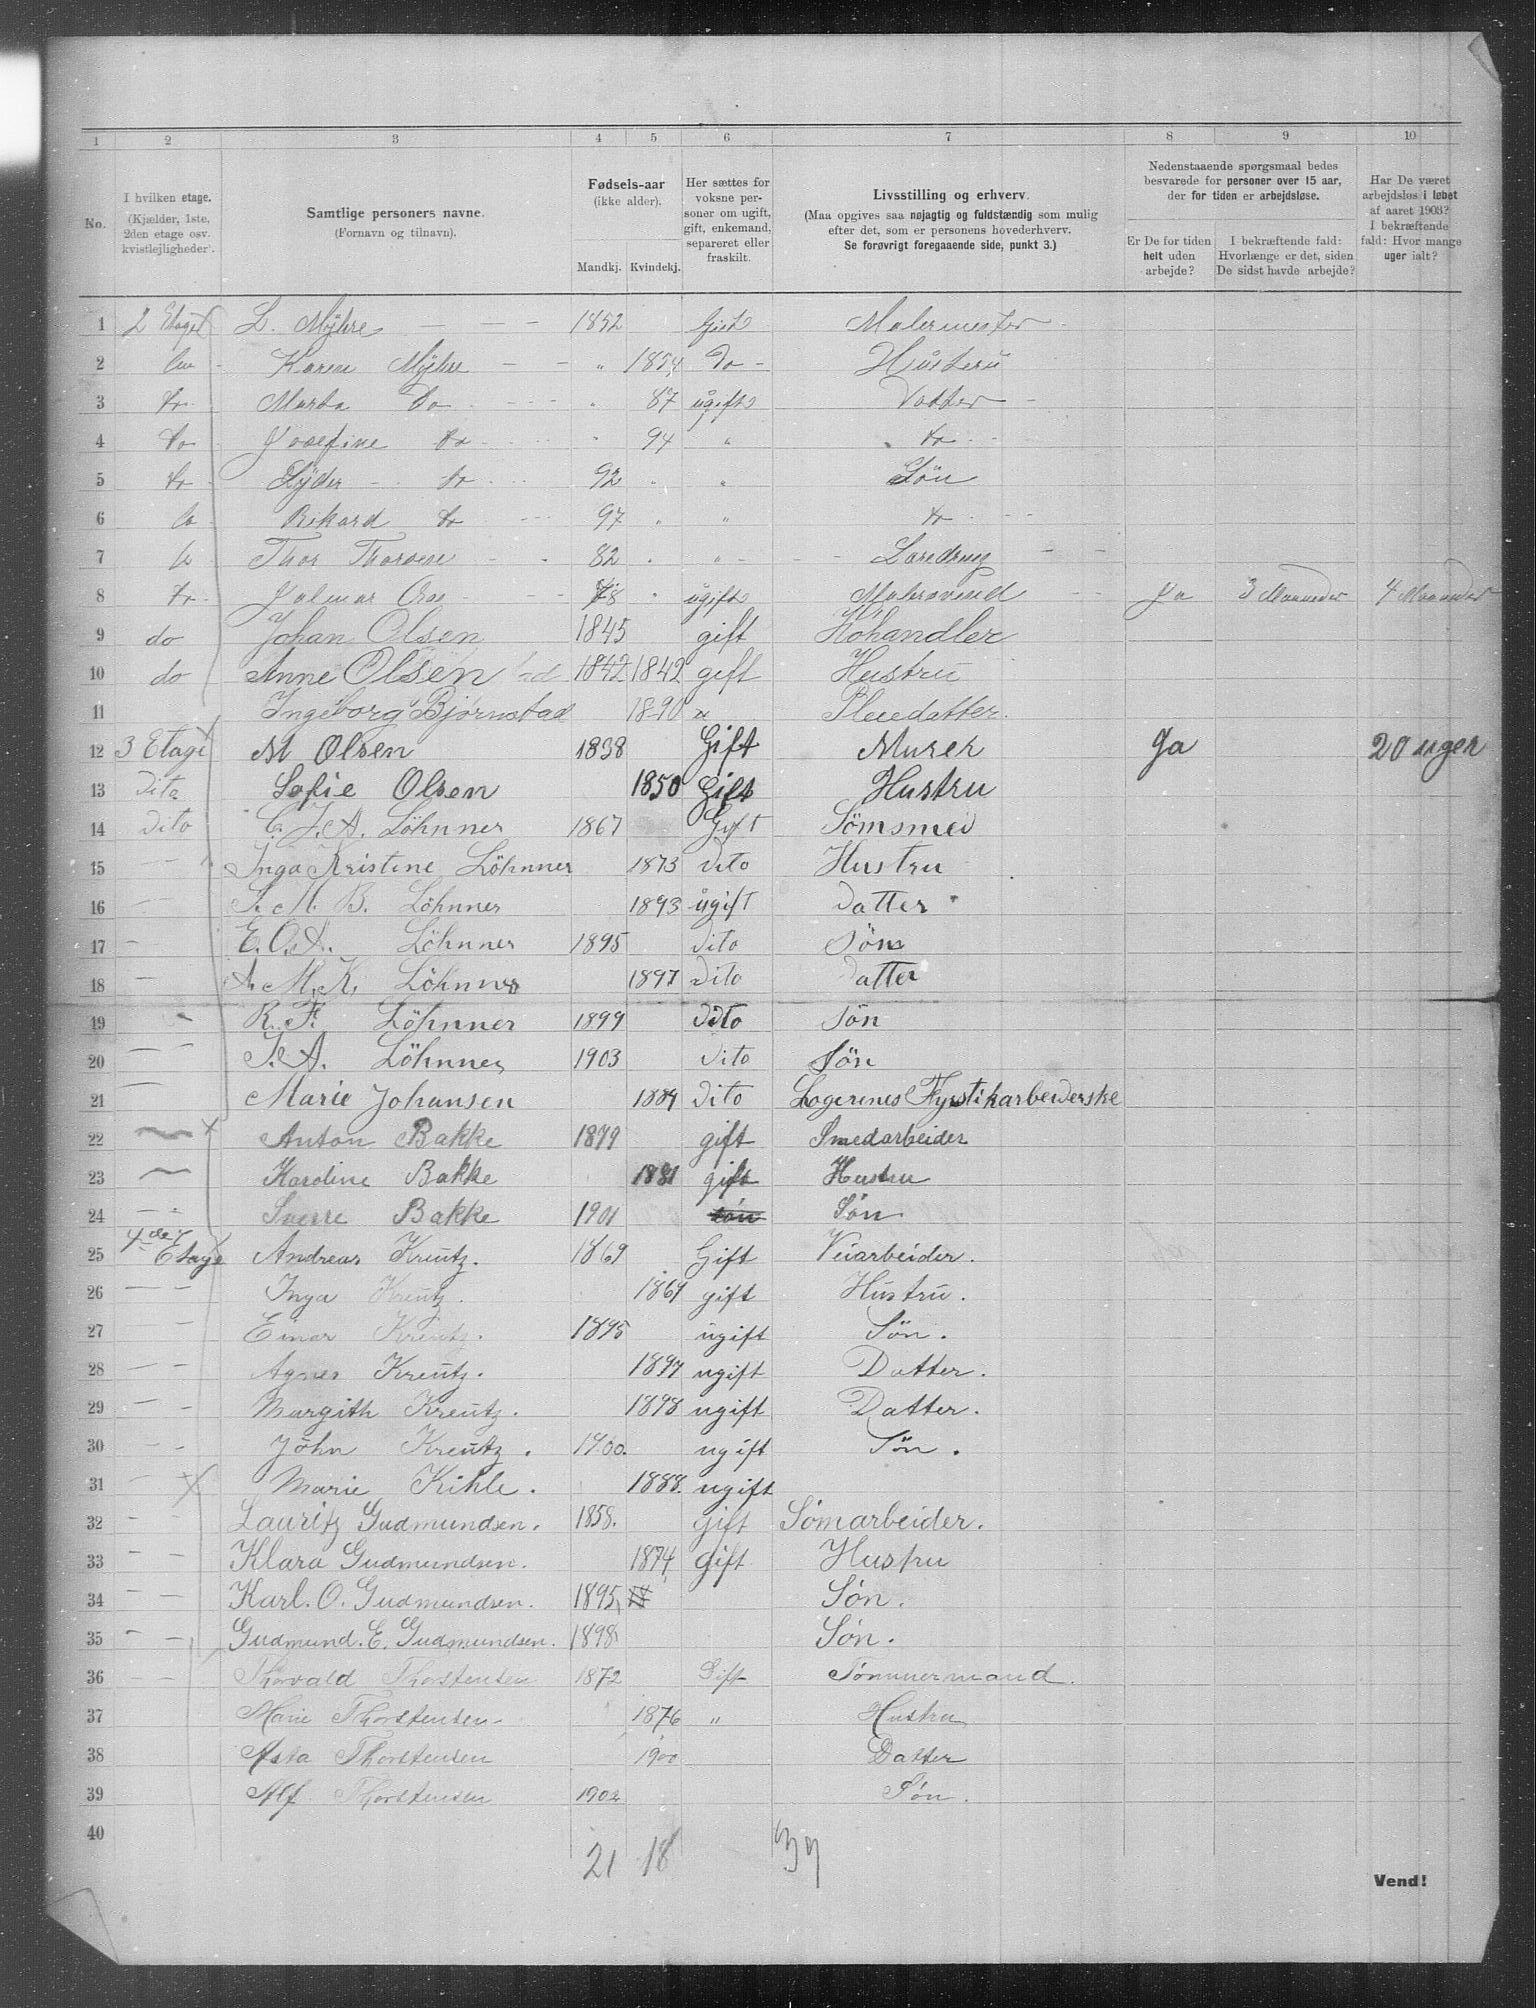 1 2 3 4 5 6 7 8 9 10
No.
I hvilken etage. (Kjælder, 1ste, 2den etage osv. kvistleiligheder).
Samtlige personers navne. (Fornavn og tilnavn).
Fødsels-aar (ikke alder). Mandkj. Kvindekj.
Her sættes for voksne personer om ugift, gift, enkemand, separeret eller fraskilt.
Livsstilling og erhverv. (Maa opgives saa nøjagtig og fuldstændig som mulig efter det, som er personens hovederhverv. Se forøvrigt foregaaende side, punkt 3.)
Nedenstaaende spørgsmaal bedes besvarede for personer over 15 aar, der for tiden er arbejdsløse.
Er De for tiden helt uden arbejde?
I bekræftende fald: Hvorlænge er det, siden De sidst havde arbejde?
Har De været arbejdsløs i løbet af aaret 1903? I bekræftende fald: Hvor mange uger ialt?
1 2 Etage L. Myhre 1852 Gift Malermester
2 Karen Myhre " 1854 Do Hüstrü
3 do Marta Do " 87 ügift Datter
4 do Josefine do " 94 " do
5 do do 92 " " Sön
6 do Rikard do 97 " " do
7 do Thor 82 " "
8 do Jalmar 78 " ügift Ja 3 Maaneder 4 Maaneder
9 do Johan Olsen 1845 gift Höhandler
10 do Anne Olsen 1842 1842 gift Hustru
11 Ingeborg Bjørnstad 1890 Pleiedatter.
12 3 Etage M Olsen 1838 Gift Murer Ja 20 uger
13 Dito Sofie Olsen 1850 Gift Hustru
14 Dito C. J. A. Löhnner 1867 Gift Sömsmed
15 — Inga Kristine Löhnner 1873 Dito Hustru
16 — M. B. Löhnner 1893 ügift Datter
17 — E. O. A. Löhnner 1895 Dito Sön
18 — A. M. K. Löhnner 1897 Dito Datter
19 — R. F. Löhnner 1899 Dito Sön
20 — A. Löhnner 1903 Dito Sön
21 — Marie Johansen 1884 Dito Logerenes Fyrstikarbeiderske
22 — Anton Bakke 1879 gift Smedarbeider
23 — Karoline Bakke 1881 gift Hustru
24 — Sverre Bakke 1901 søn Søn
25 4de Etage Andreas Kreutz. 1869 Gift Veiarbeider.
26 — Inga Kreutz. 1869 gift Hustru.
27 — Einar Kreutz. 1895 ugift Søn.
28 — Agnes Kreutz. 1897 ugift Datter.
29 — Margith Kreutz. 1898 ugift Datter.
30 — John Kreutz. 1900. ugift Søn.
31 — Marie Kihle. 1888. ugift
32 — Lauritz Gudmundsen. 1858. Gift Sömarbeider.
33 — Klara Gudmundsen. 1874 gift Hustru
34 — Karl. O. Gudmundsen. 1895 Søn.
35 — Gudmund. E. Gudmundsen. 1898 Søn.
36 Thorvald Thorstensen 1872 Gift Tømmermand.
37 Marie Thorstensen 1876 " Hustru
38 Asta Thorstensen 1900 Datter
39 Alf Thorstensen 1902 Søn.
40
21 18 39
Vend!